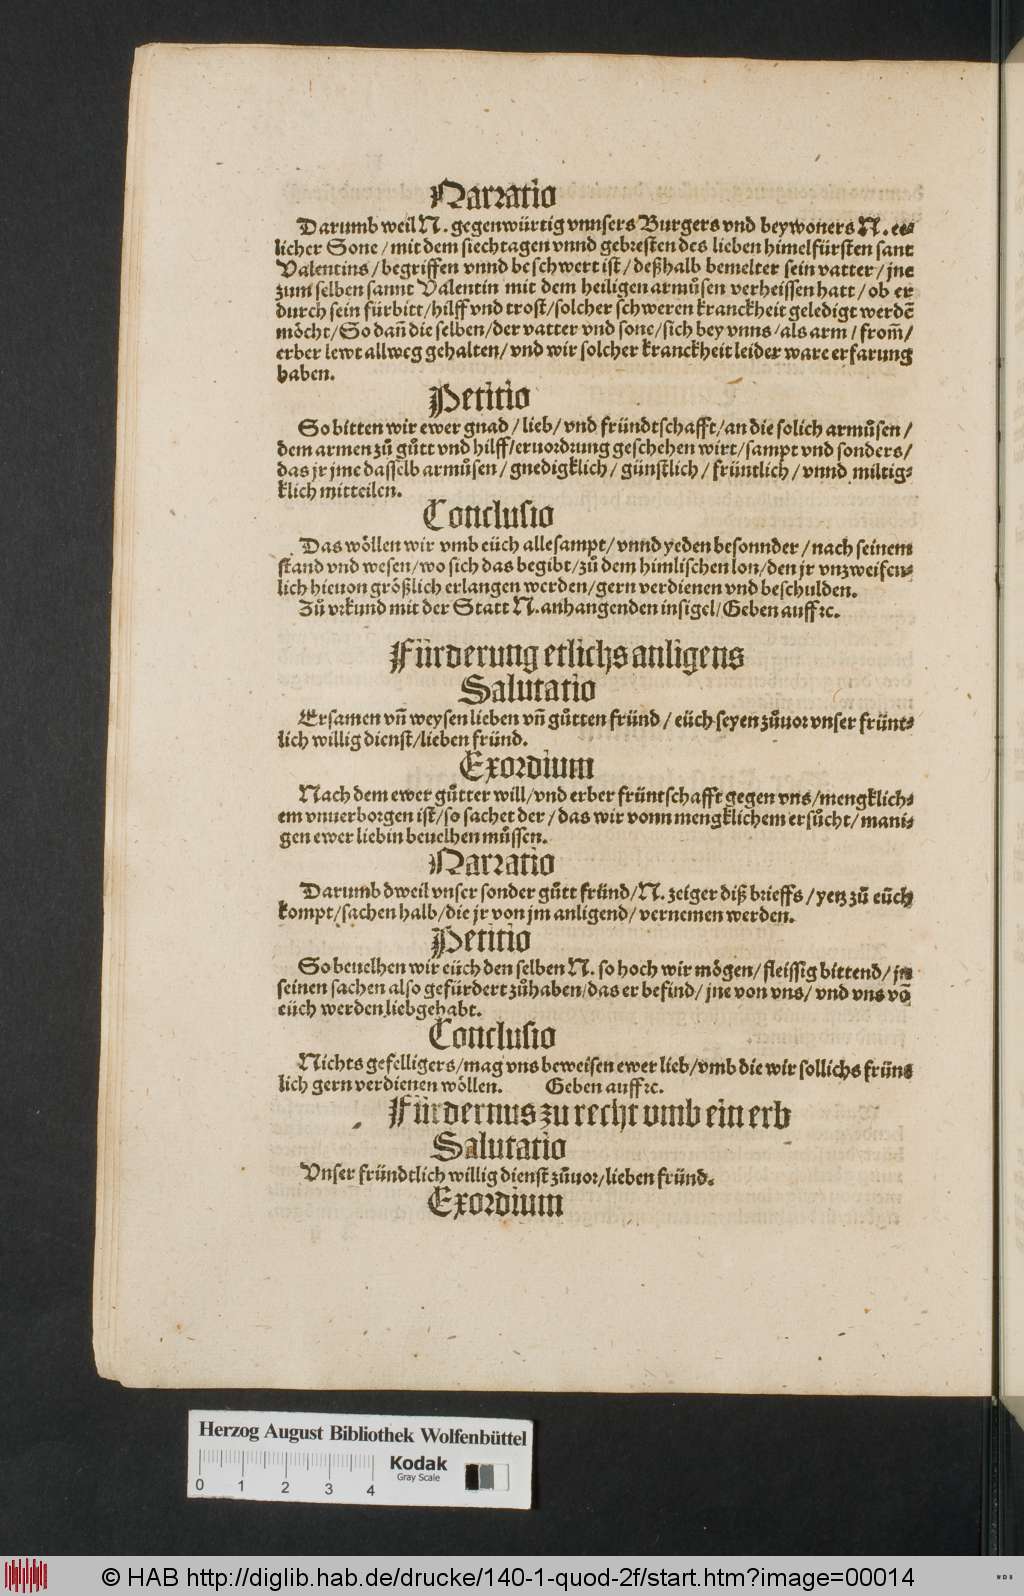 Narratio
Darumb weil N. gegenwürtig vnnsers Burgers vnd beywoners N. ee-
licher Sone / mit dem siechtagen vnnd gebresten des lieben himelfürsten sant
Valentins / begriffen vnnd beschwert ist / deßhalb bemelter sein vatter / jne
zum selben sannt Valentin mit dem heiligen armůsen verheissen hatt / ob er
durch sein fürbitt / hilff vnd trost / solcher schweren kranckheit geledigt werdē
möcht / So dañ die selben / der vatter vnd sone / sich bey vnns / als arm / from̃ /
erber lewt allweg gehalten / vnd wir solcher kranckheit leider ware erfarung
haben.
Petitio
So bitten wir ewer gnad / lieb / vnd fründtschafft / an die solich armůsen /
dem armen zů gůtt vnd hilff / eruordrung geschehen wirt / sampt vnd sonders /
das jr jme dasselb armůsen / gnedigklich / günstlich / früntlich / vnnd miltig-
klich mitteilen.
Conclusio
Das wöllen wir vmb eüch alle sampt / vnnd yeden besonnder / nach seinem
stand vnd wesen / wo sich das begibt / zů dem himlischen lon / den jr vnzweifen-
lich hieuon größlich erlangen werden / gern verdienen vnd beschulden.
Zů vrkund mit der Statt N. anhangenden insigel / Geben auff ꝛc.
Fürderung etlichs anligens
Salutatio
Ersamen vñ weysen lieben vñ gůtten fründ / eüch seyen zůuor vnser frünt-
lich willig dienst / lieben fründ.
Exordium
Nach dem ewer gůtter will / vnd erber früntschafft gegen vns / mengklich-
em vnuerborgen ist / so sachet der / das wir vonn mengklichem ersůcht / mani-
gen ewer lieb in beuelhen můssen.
Narratio
Darumb dweil vnser sonder gůtt fründ / N. zeiger diß brieffs / yetz zů eüch
kompt / sachen halb / die jr von jm anligend / vernemen werden.
Petitio
So beuelhen wir eüch den selben N. so hoch wir mögen / fleissig bittend / jn
seinen sachen also gefürdert zůhaben / das er befind / jne von vns / vnd vns võ
eüch werden liebgehabt.
Conclusio
Nichts gefelligers / mag vns beweisen ewer lieb / vmb die wir sollichs früns
lich gern verdienen wöllen. Geben auff ꝛc.
Fürdernus zu recht vmb ein erb
Salutatio
Vnser fründtlich willig dienst zůuor / lieben fründ.
Exordium
Herzog August Bibliothek Wolfenbüttel
Kodak
Gray Scale
0 1 2 3 4
© HAB http://diglib.hab.de/drucke/140-1-quod-2f/start.htm?image=00014